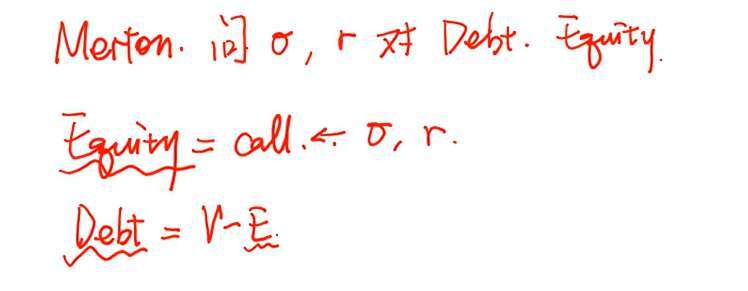 Merton. 问 σ, r 对 Debt. Equity.
Equity = call. ← σ, r.
Debt = V - E.